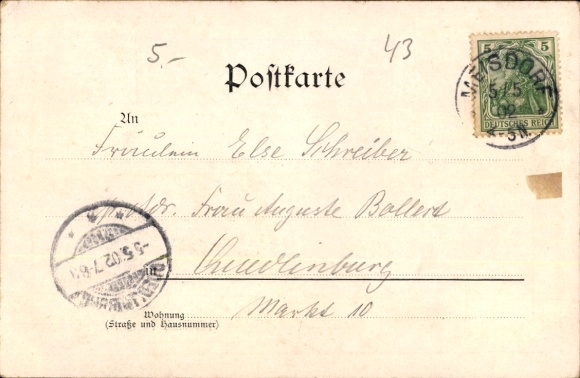 5.-
43
Postkarte
5 5
DEUTSCHES REICH
MEISDORF
5/5
02
An
Fräulein Else Schreiber
Adr. Frau Auguste Bollert
-5.5.02.7-8
in
Quedlinburg
Markt 10
Wohnung
(Straße und Hausnummer)